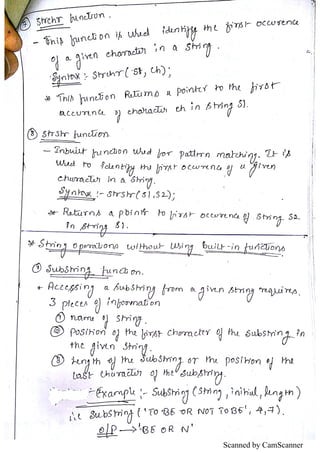 ⑦ Strchr function.
- This function is used identify the first occurence
of a given character in a string.
Syntax :- Strchr(S1, ch);
* This function Returns a pointer to the first
occurence of character ch in string S1.
⑧ Strstr function
- Inbuilt function used for pattern matching. It is
used to identify the first occurence of a given
character in a string.
Syntax :- strstr(S1,S2);
* Returns a pointer to first occurence of string S2
in string S1.
* String operations without using built-in functions
① Substring function.
* Accessing a substring from a given string requires.
3 pieces of information
① name of string.
② Position of the first character of the substring in
the given string.
③ Length of the substring or the position of the
last character of the substring.
- Example :- Substring (string, initial, length)
i.e substring ('TO BE OR NOT TO BE', 4, 7).
O/P → 'BE OR N'
Scanned by CamScanner